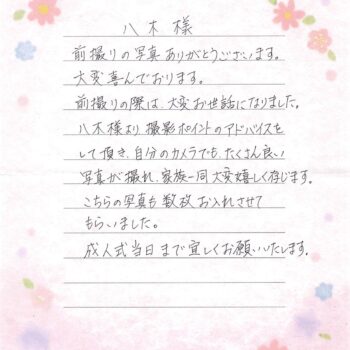 八木様
前撮りの写真ありがとうございます。
大変喜んでおります。
前撮りの際は、大変お世話になりました。
八木様より撮影ポイントのアドバイスを
して頂き、自分のカメラでも、たくさん良い
写真が撮れ、家族一同大変嬉しく存じます。
こちらの写真も数枚お入れさせて
もらいました。
成人式当日まで宜しくお願いいたします。